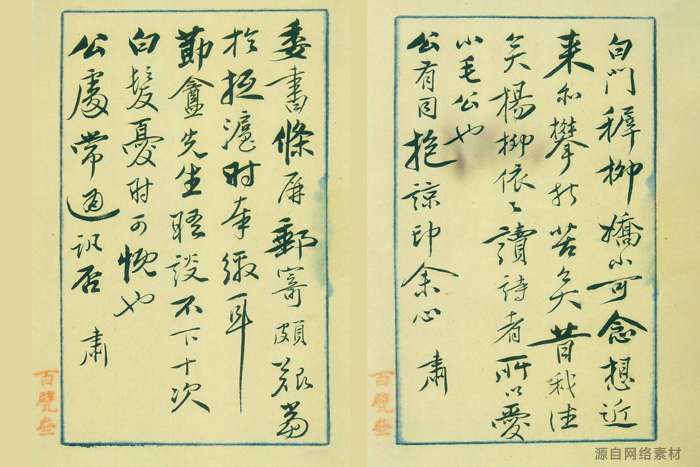 白門穉柳嬌小可念想近
来亦攀折苦矣昔我往
矣楊柳依々讀詩者所以愛
小毛公也
公有同抱諒印余心 肅
百甓
委書條屏郵寄頗艱當
於抵滬時奉繳耳
勤盦先生晤談不下十次
白髮憂時可慨也
公處常通訊否 肅
百甓
源自网络素材